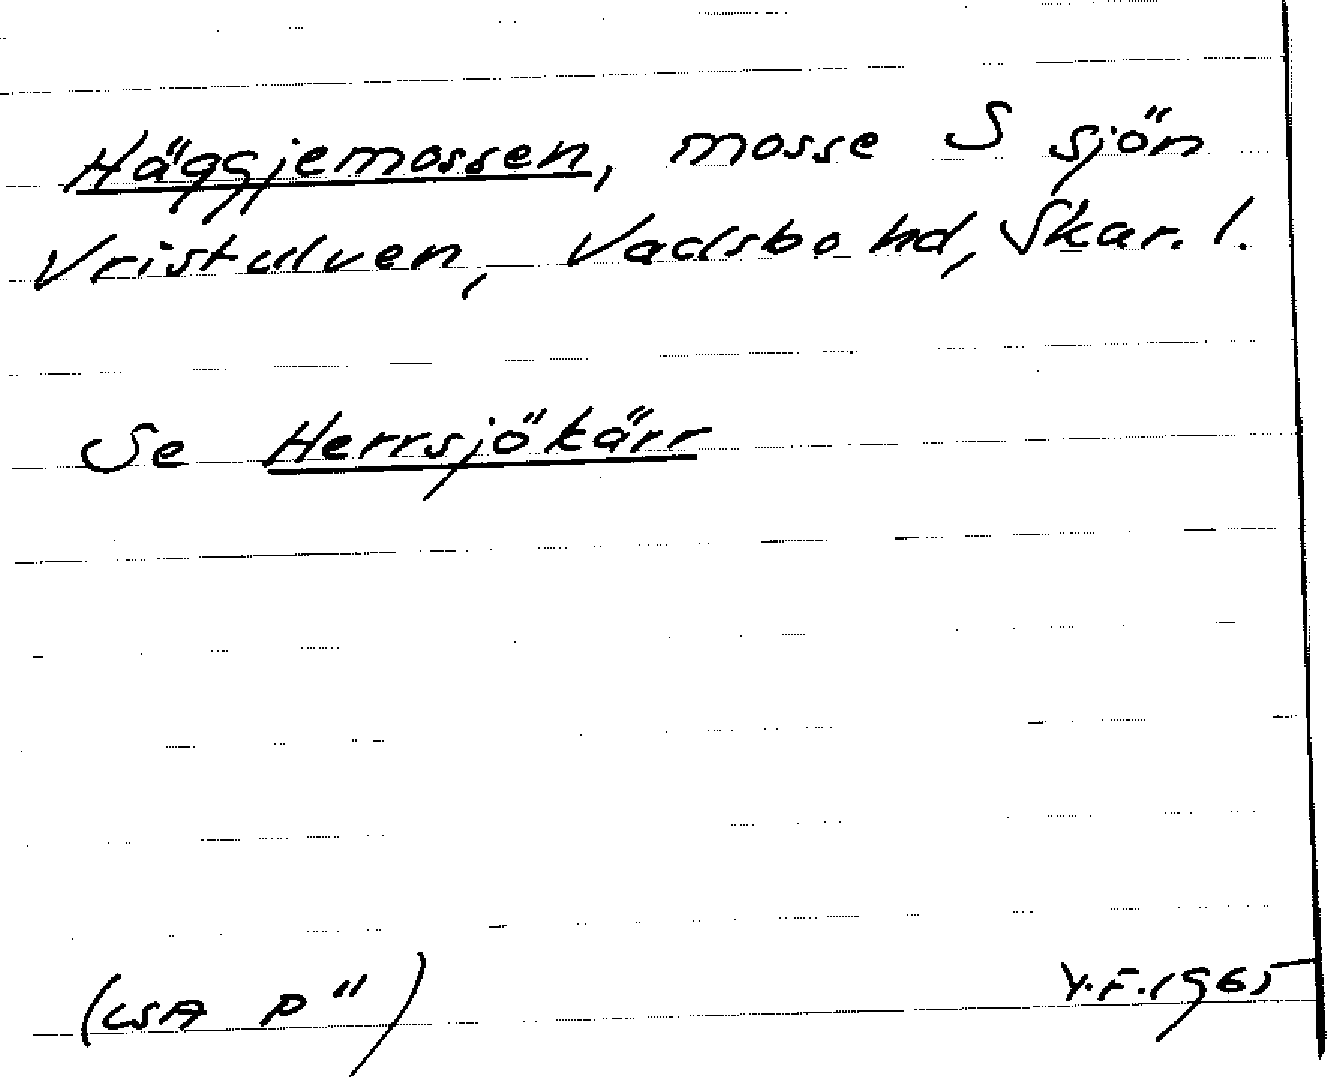 Häggjemossen, mosse S sjön
Vristulven, Vadsbo hd, Skar. l.
Se Herrsjökärr
(LSA P")
Y.F. 1965